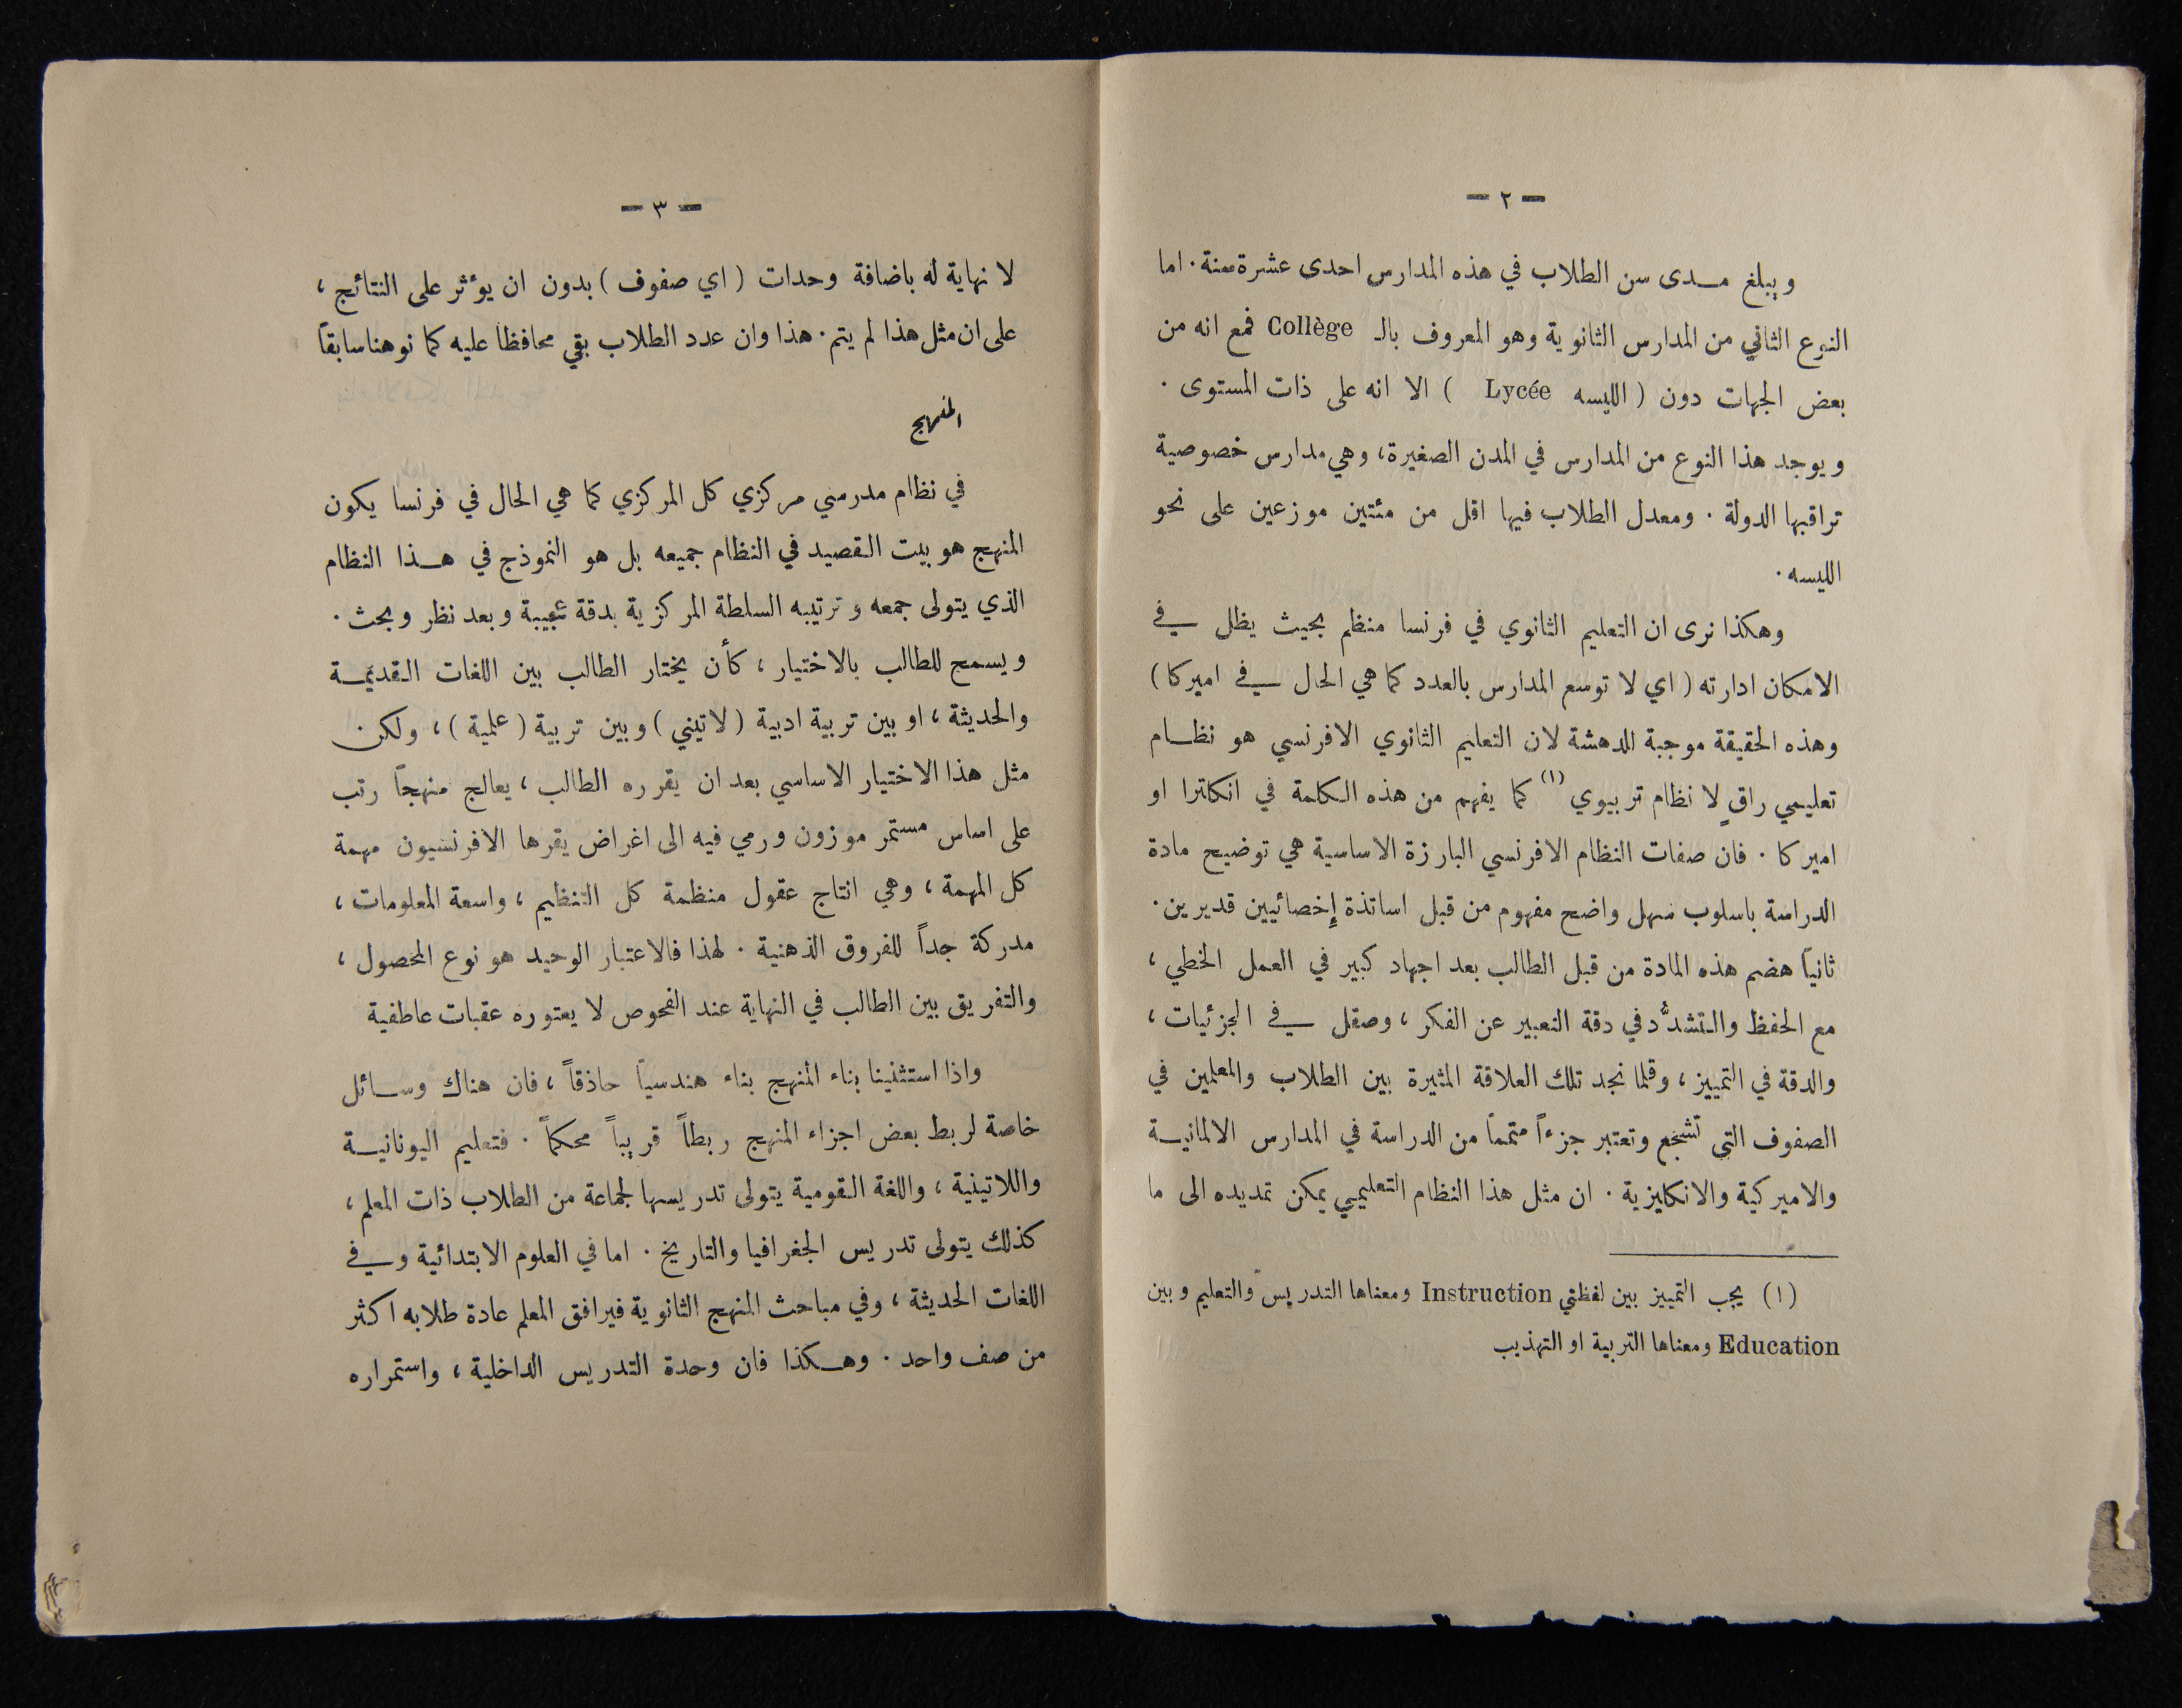 — ٢ —
ويبلغ مدى سن الطلاب في هذه المدارس احدى عشرة سنة . اما
النوع الثاني من المدارس الثانوية وهو المعروف بالـ Collège فمع انه من
بعض الجهات دون ( الليسه Lycée ) الا انه على ذات المستوى .
ويوجد هذا النوع من المدارس في المدن الصغيرة ، وهي مدارس خصوصية
تراقبها الدولة . ومعدل الطلاب فيها اقل من مئتين موزعين على نحو
الليسه .
وهكذا نرى ان التعليم الثانوي في فرنسا منظم بحيث يظل في
الامكان ادارته ( اي لا توسع المدارس بالعدد كما هي الحال في اميركا )
وهذه الحقيقة موجبة للدهشة لان التعليم الثانوي الافرنسي هو نظام
تعليمي راقٍ لا نظام تربيوي (١) كما يفهم من هذه الكلمة في انكلترا او
اميركا . فان صفات النظام الافرنسي البارزة الاساسية هي توضيح مادة
الدراسة باسلوب سهل واضح مفهوم من قبل اساتذة إخصائيين قديرين .
ثانياً هضم هذه المادة من قبل الطالب بعد اجهاد كبير في العمل الخطي ،
مع الحفظ والتشدُّد في دقة التعبير عن الفكر ، وصقل في الجزئيات ،
والدقة في التمييز ، وقلما نجد تلك العلاقة المثيرة بين الطلاب والمعلمين في
الصفوف التي تشجع وتعتبر جزءاً متمماً من الدراسة في المدارس الالمانية
والاميركية والانكليزية . ان مثل هذا النظام التعليمي يمكن تمديده الى ما
(١) يجب التمييز بين لفظتي Instruction ومعناها التدريس والتعليم وبين
Education ومعناها التربية او التهذيب
— ٣ —
لا نهاية له باضافة وحدات ( اي صفوف ) بدون ان يؤثر على النتائج ،
على ان مثل هذا لم يتم . هذا وان عدد الطلاب بقي محافظاً عليه كما نوهنا سابقاً
المنهج
في نظام مدرسي مركزي كل المركزي كما هي الحال في فرنسا يكون
المنهج هو بيت القصيد في النظام جميعه بل هو النموذج في هذا النظام
الذي يتولى جمعه وترتيبه السلطة المركزية بدقة عجيبة وبعد نظر وبحث .
ويسمح للطالب بالاختيار ، كأن يختار الطالب بين اللغات القديمة
والحديثة ، او بين تربية ادبية ( لاتيني ) وبين تربية ( علمية ) ، ولكن
مثل هذا الاختيار الاساسي بعد ان يقرره الطالب ، يعالج منهجاً رتب
على اساس مستمر موزون ورمي فيه الى اغراض يقرها الافرنسيون مهمة
كل المهمة ، وهي انتاج عقول منظمة كل التنظيم ، واسعة المعلومات ،
مدركة جداً للفروق الذهنية . لهذا فالاعتبار الوحيد هو نوع المحصول ،
والتفريق بين الطالب في النهاية عند الفحوص لا يعتوره عقبات عاطفية
واذا استثنينا بناء المنهج بناء هندسياً حاذقاً ، فان هناك وسائل
خاصة لربط بعض اجزاء المنهج ربطاً قريباً محكماً . فتعليم اليونانية
واللاتينية ، واللغة القومية يتولى تدريسها لجماعة من الطلاب ذات المعلم ،
كذلك يتولى تدريس الجغرافيا والتاريخ . اما في العلوم الابتدائية وفي
اللغات الحديثة ، وفي مباحث المنهج الثانوية فيرافق المعلم عادة طلابه اكثر
من صف واحد . وهكذا فان وحدة التدريس الداخلية ، واستمراره